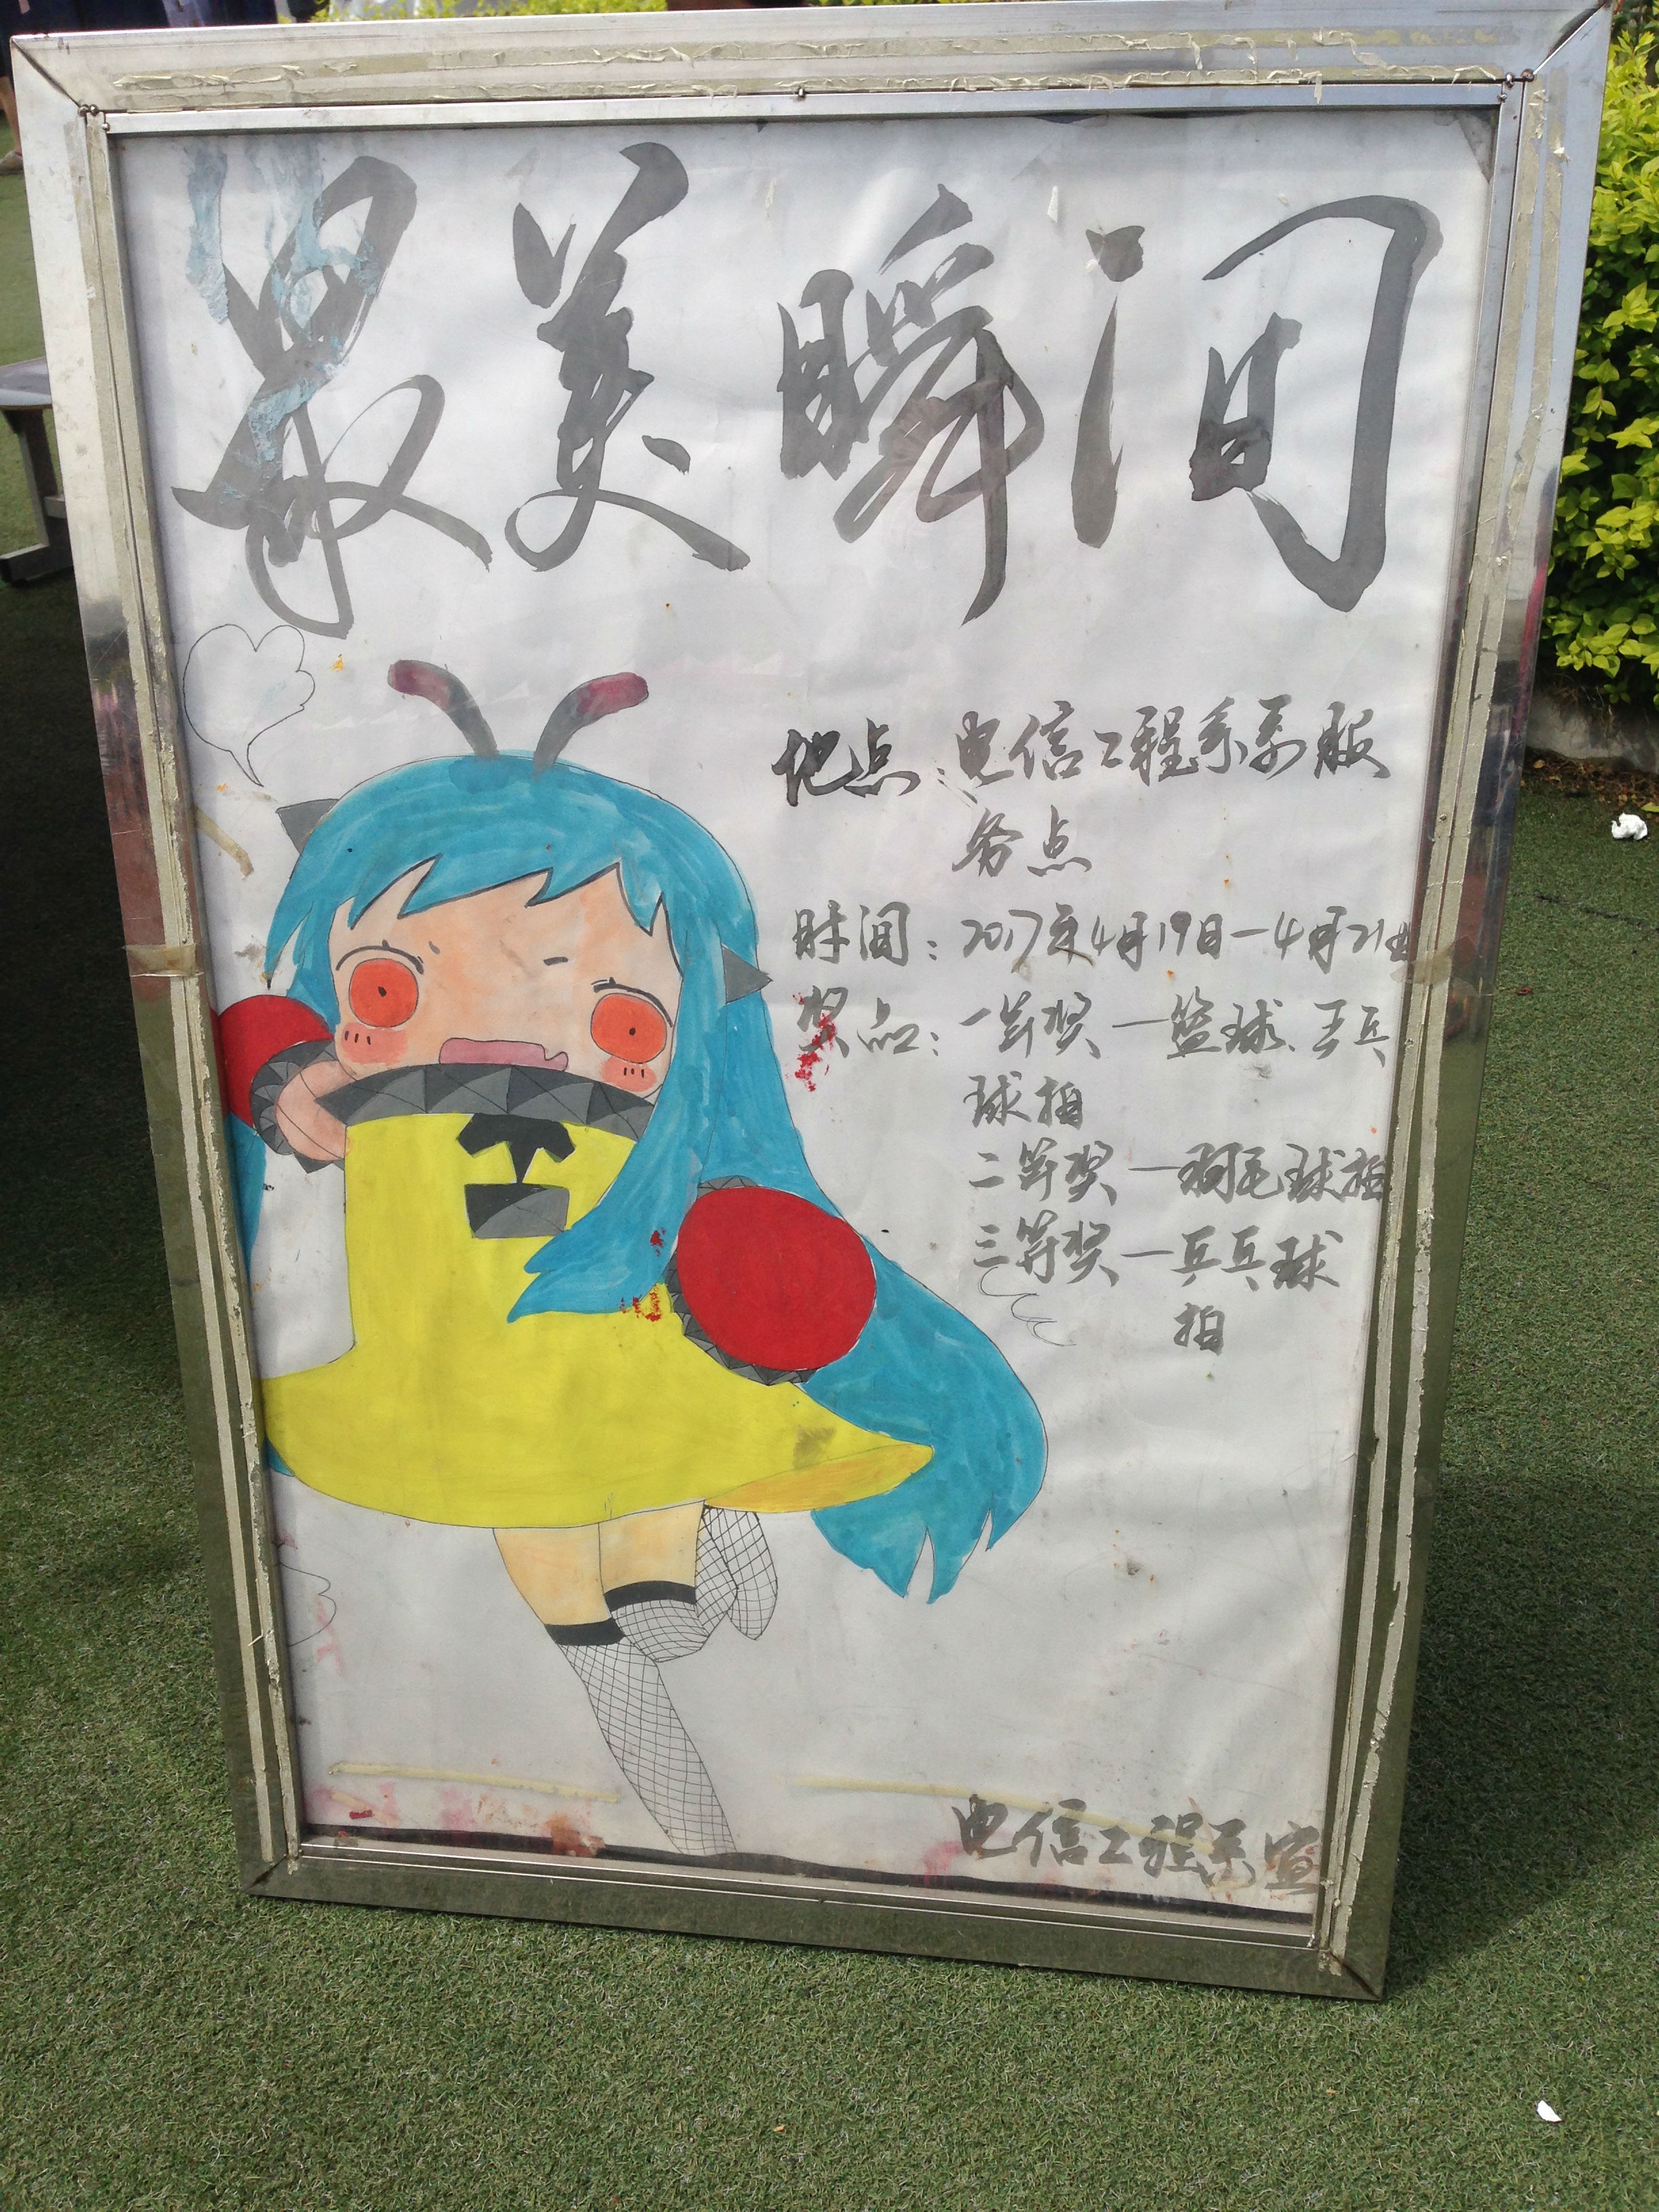 最美瞬间
地点：电信工程系系服
务点
时间：2017年4月19日—4月21日
奖品：一等奖—篮球、乒乓
球拍
二等奖—羽毛球拍
三等奖—乒乓球
拍
电信工程系宣